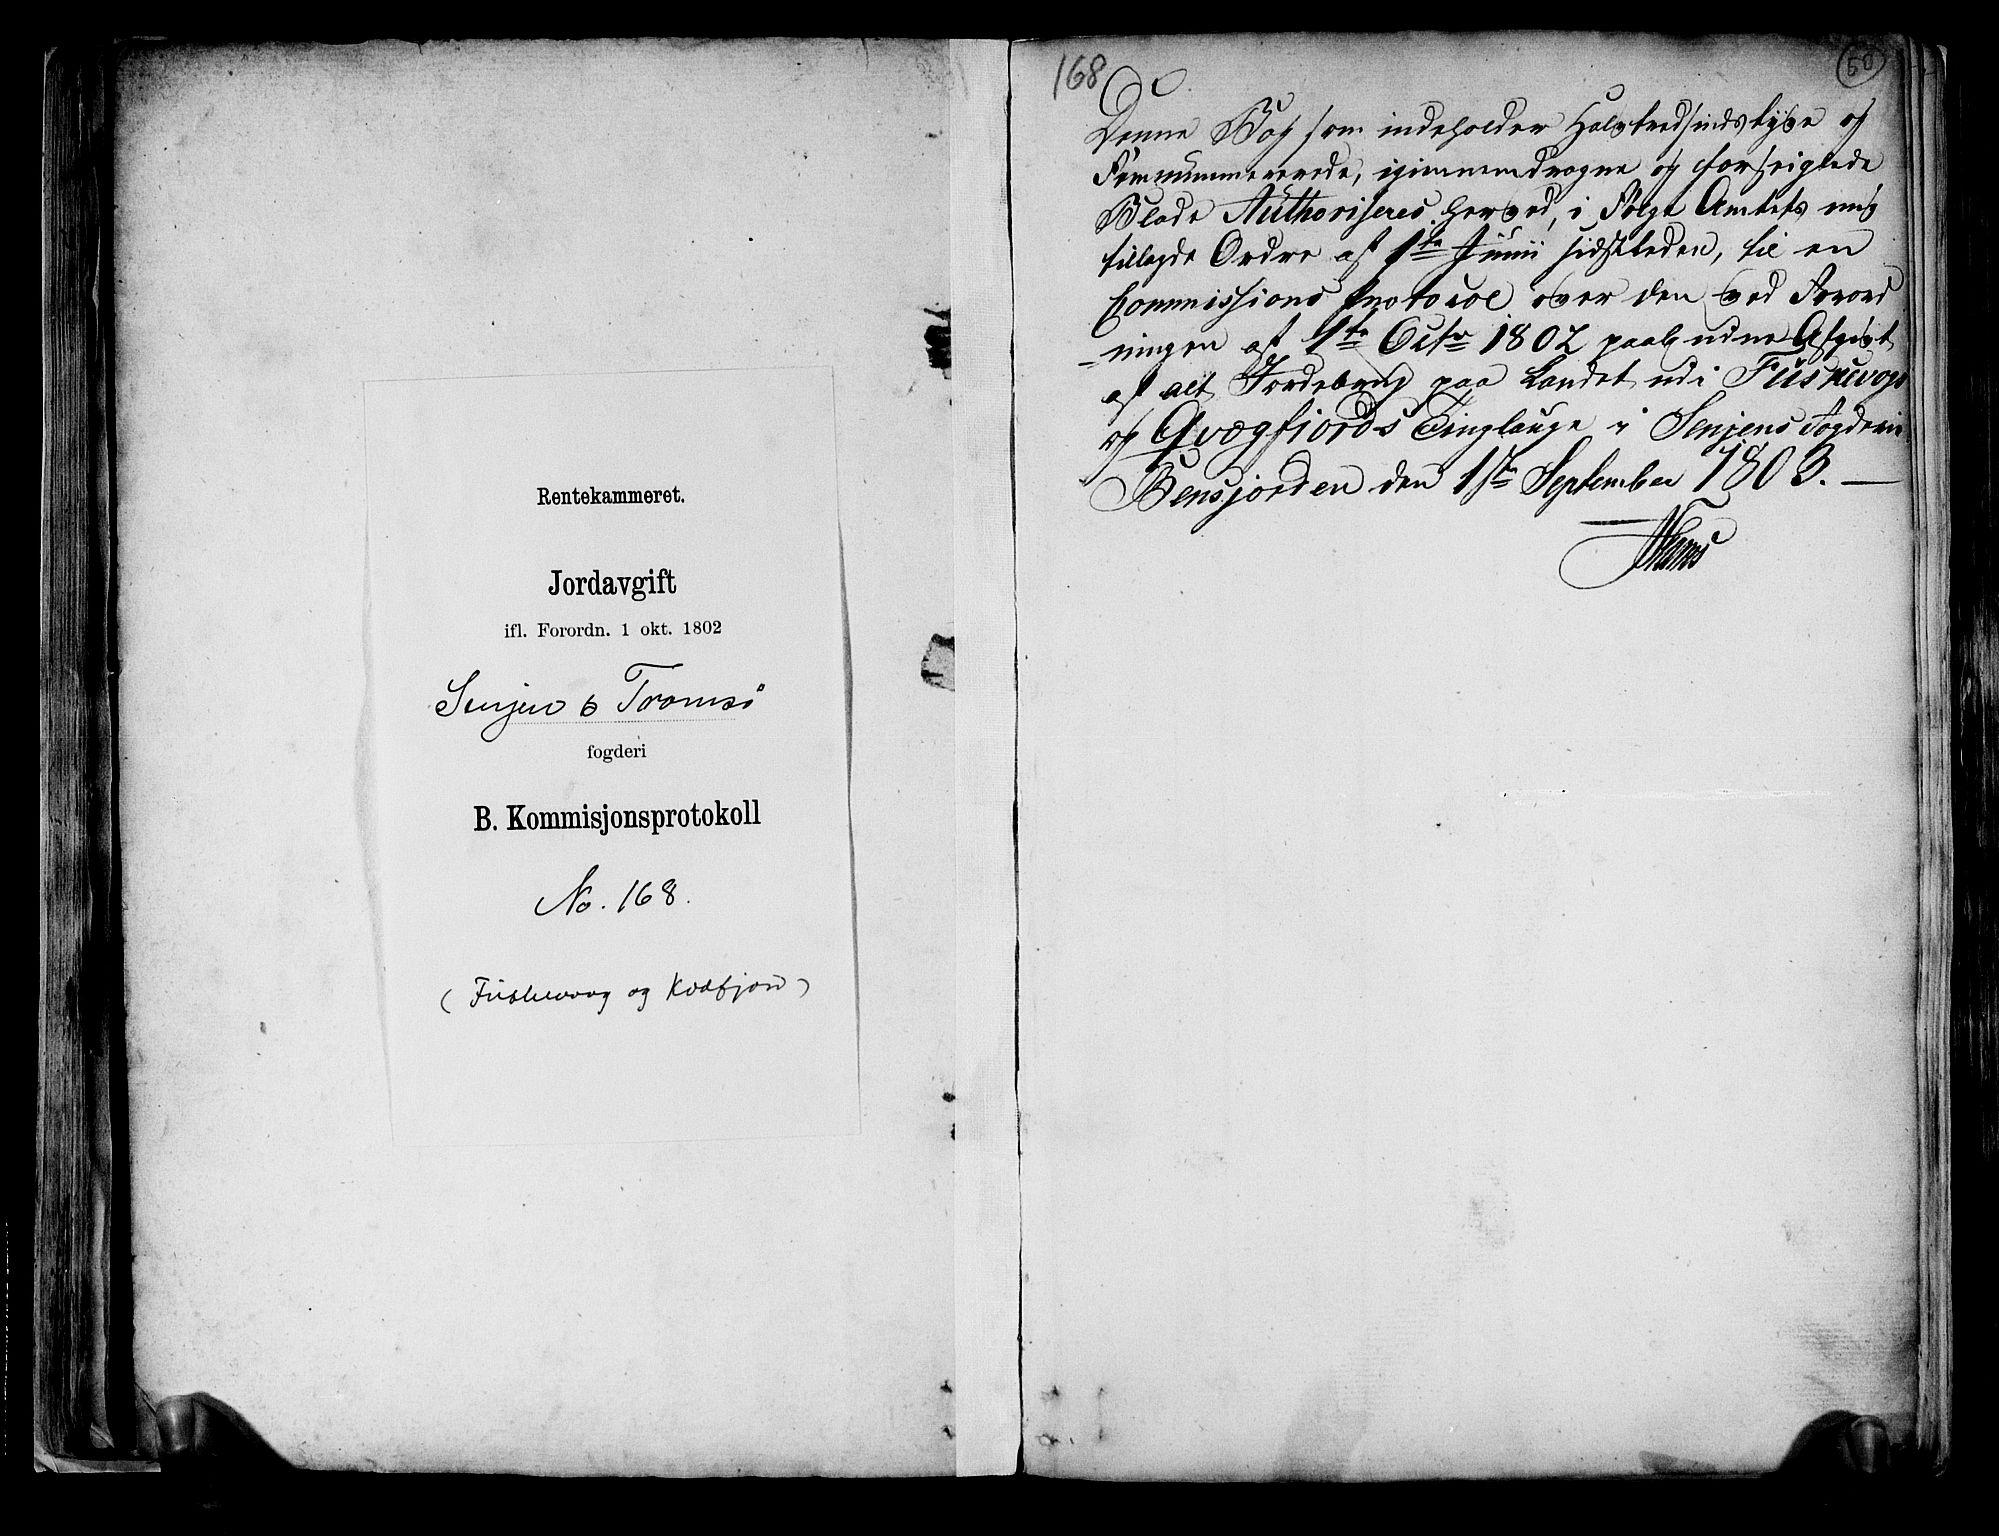 Rentekammeret.
Jordavgift
ifl. Forordn. 1 okt. 1802
Senjen o Tromsö
fogderi
B. Kommisjonsprotokoll
No. 168.
(Fuskevaag og Kvæfjord)
168
50
Denne Bog som indeholder Halvtredsindstyve og
Fem nummererede, igiennemdragne og forseiglede
Blade Authoriseres herved, i Følge Amtets mig
tillagde Ordre af 1te Junii sidstleden, til en
Commissions Protocol over den ved Forord
=ningen af 1te Octbr 1802 paabudne Afgivt
af alt Jordebrug paa Landet udi Fuskevogs
og Qvægfjords Tinglauge i Senjens Fogderie.
Bensjorden den 17de September 1803. —